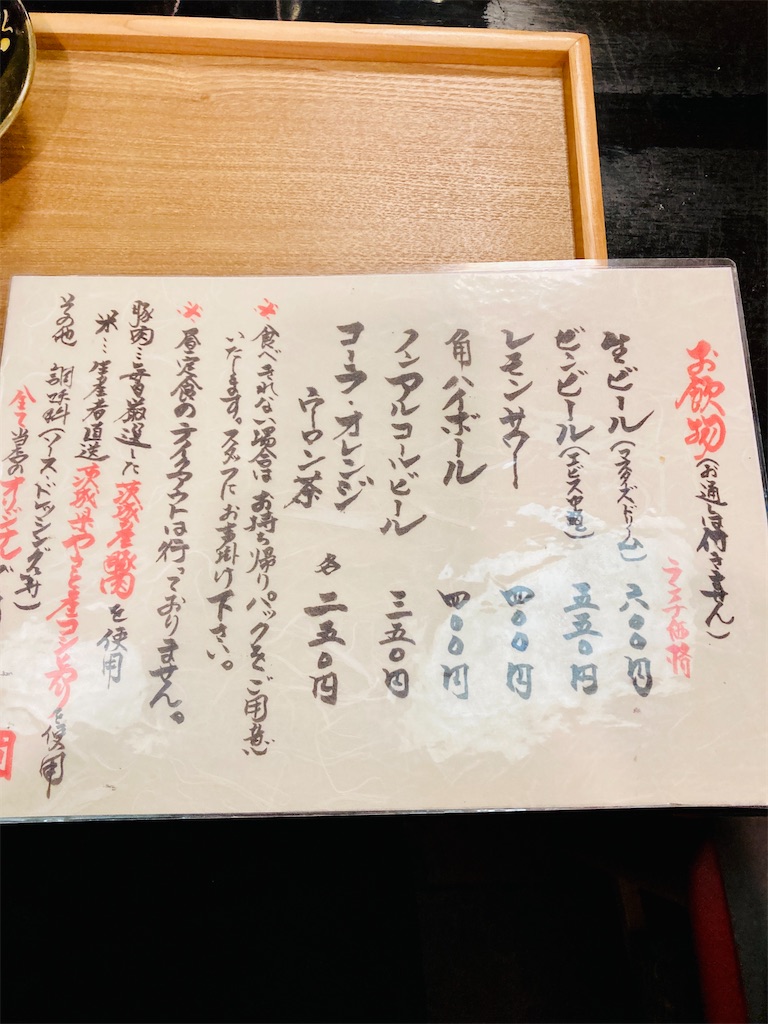 お飲物(お通しは付きません)
ランチ価格
生ビール(マスターズドリーム) 六〇〇円
ビンビール(エビス中瓶) 五五〇円
レモンサワー 四〇〇円
角ハイボール 四〇〇円
ノンアルコールビール 三五〇円
コーラ・オレンジ
ウーロン茶 各 二五〇円
※食べきれない場合はお持ち帰りパックをご用意
いたします。スタッフにお声掛け下さい。
※昼定食のテイクアウトは行っておりません。
豚肉…毎日厳選した茨城産豚肉を使用
米…生産者直送 茨城県やさと産コシヒカリを使用
その他 調味料(ソース・ドレッシング・みそ)
全て当店のオリジナル